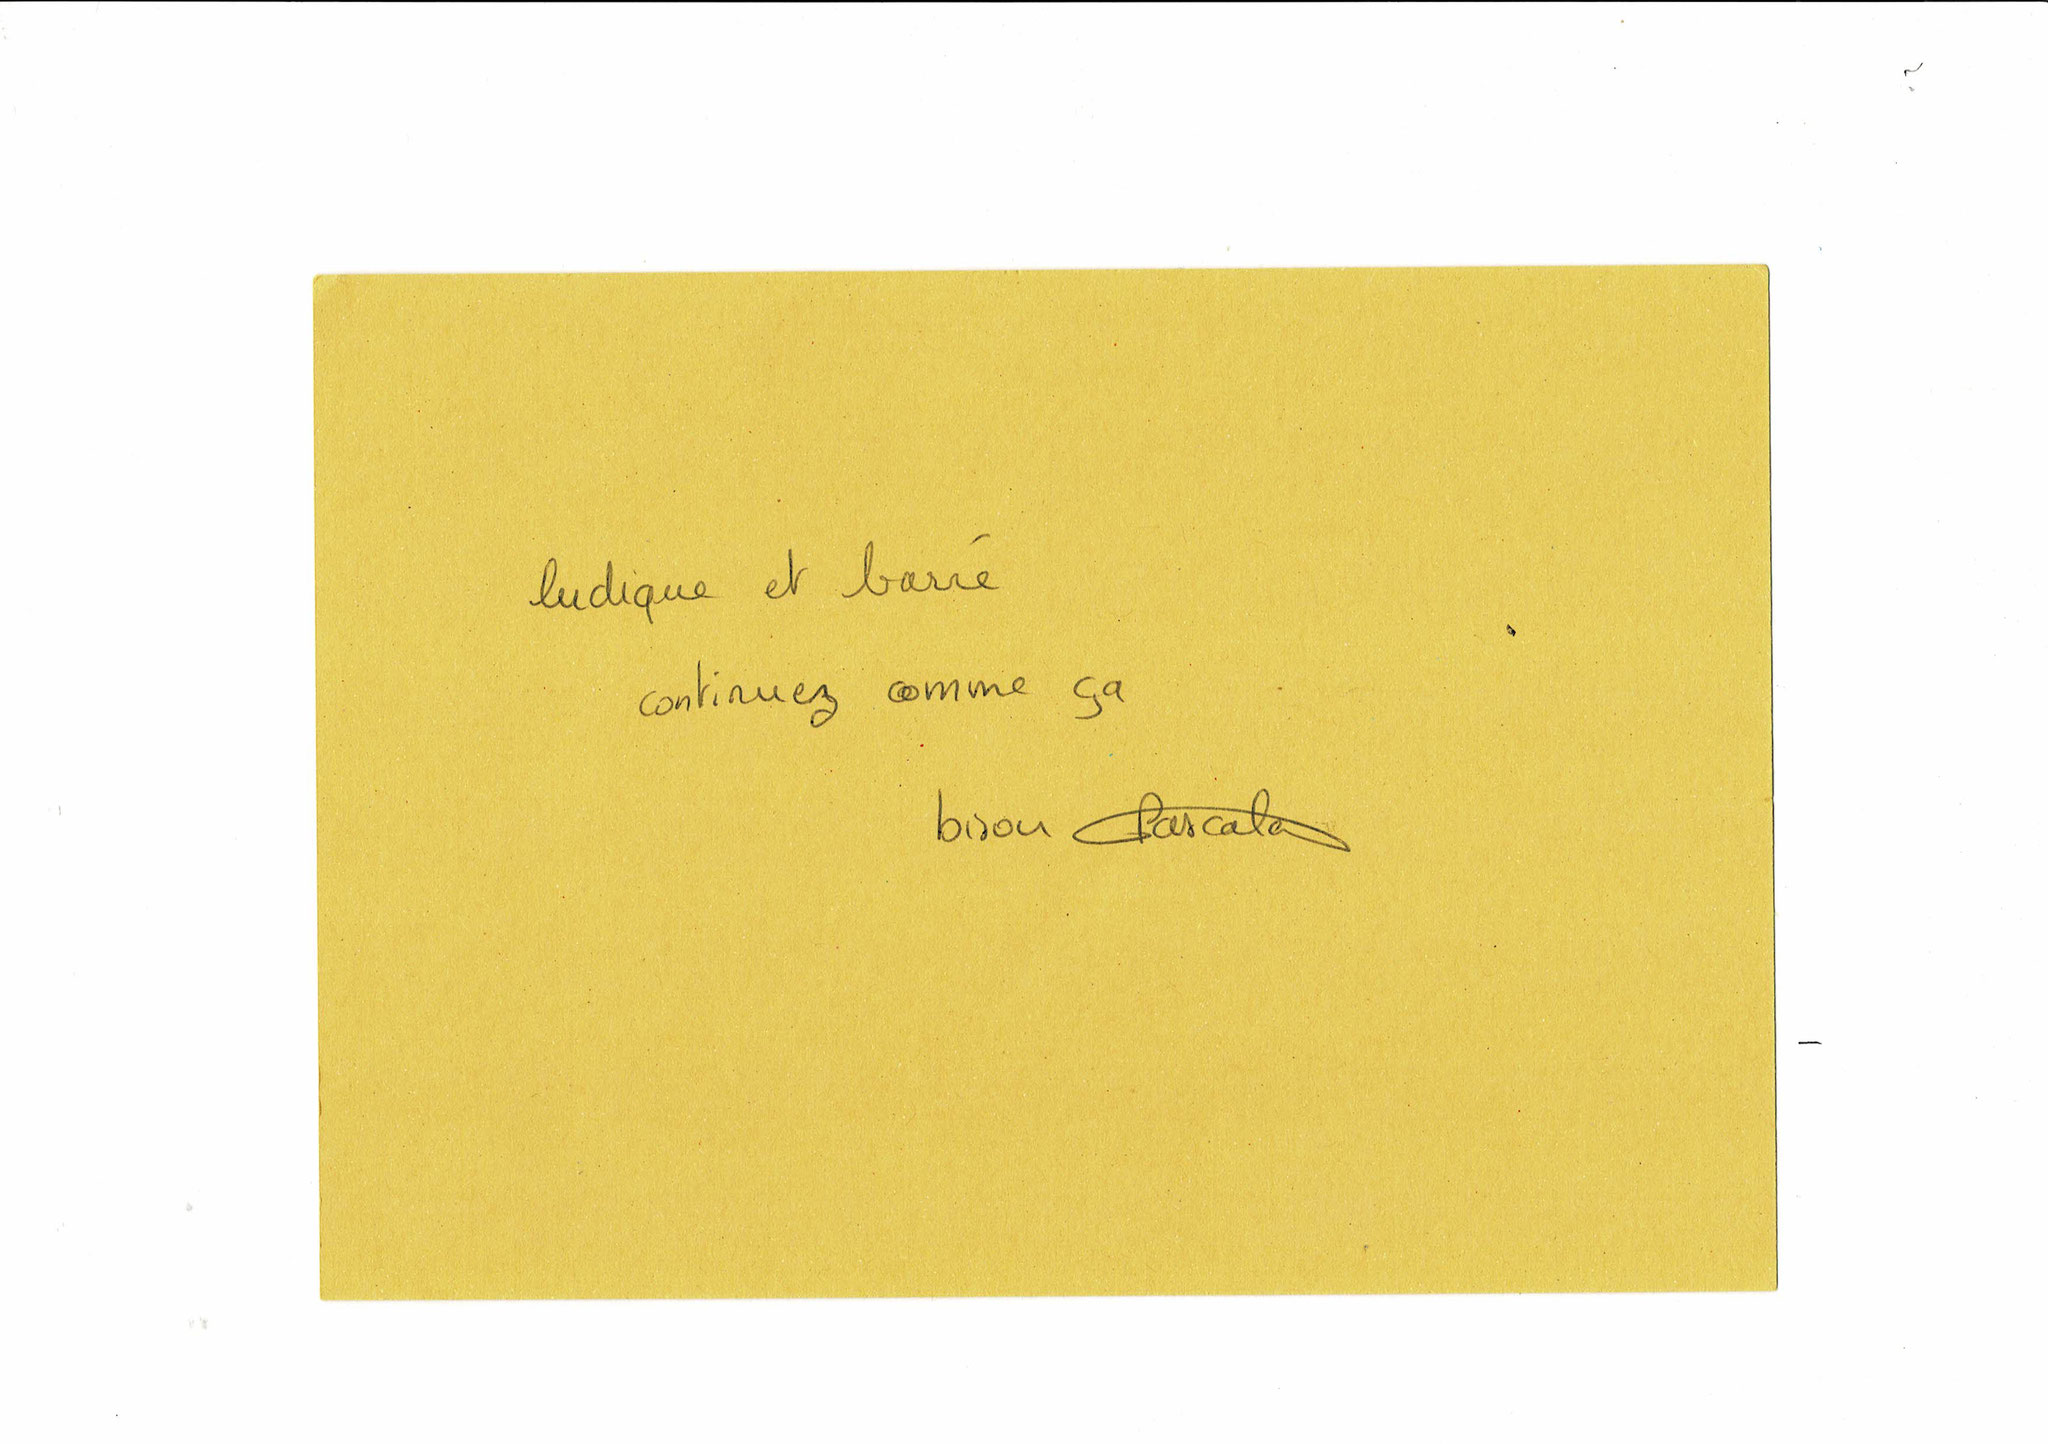 ludique et barré
continuez comme ça
bisou Pascala